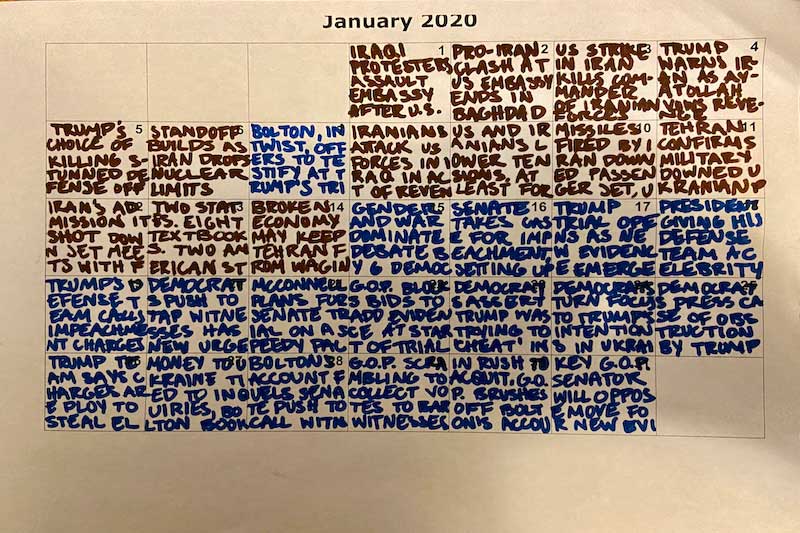 January 2020
1
IRAQI
PROTESTERS
ASSAULT
EMBASSY
AFTER U.S.
2
PRO-IRAN
CLASH AT
US EMBASSY
ENDS IN
BAGHDAD
3
US STRIKE
IN IRAN
KILLS COM-
MANDER
OF IRANIAN
FORCES
4
TRUMP
WARNS IR-
AN AS AY-
ATOLLAH
VOWS REVE-
NGE
5
TRUMP'S
CHOICE OF
KILLING S-
TUNNED DE
FENSE OFF
6
STANDOFF
BUILDS AS
IRAN DROPS
NUCLEAR
LIMITS
BOLTON, IN
TWIST, OFF
ERS TO TE
STIFY AT T
RUMP'S TRI
IRANIANS
ATTACK US
FORCES IN I
RAQ IN AC
T OF REVEN
US AND IR
ANIANS L
OWER TEN
SIONS, AT
LEAST FOR
10
MISSILES
FIRED BY I
RAN DOWN
ED PASSEN
GER JET, U
11
TEHRAN
CONFIRMS
MILITARY
DOWNED U
KRANIAN P
IRAN'S AD
MISSION IT
SHOT DOW
N JET MEE
TS WITH F
TWO STAT
ES. EIGHT
TEXTBOOK
S. TWO AM
ERICAN ST
14
BROKEN
ECONOMY
MAY KEEP
TEHRAN F
ROM WAGIN
15
GENDER
AND WAR
DOMINATE
DEBATE B
Y 6 DEMOC
16
SENATE
TAKES CAS
E FOR IMP
EACHMENT
SETTING UP
17
TRIUMP
TRIAL OPE
NS AS NE
W EVIDENC
E EMERGE
18
PRESIDEN
GIVING HIS
DEFENSE
TEAM A C
ELEBRITY
19
TRUMP'S D
EFENSE T
EAM CALLS
IMPEACHME
NT CHARGES
DEMOCRAT
S PUSH TO
TAP WITNE
SSES HAS
NEW URGE
MCCONNEL
PLANS FOR
SENATE TR
IAL ON A S
PEEDY PAC
G.O.P. BLOCK
S BIDS TO
ADD EVIDEN
CE AT STAR
T OF TRIAL
DEMOCRAT
S ASSERT
TRUMP WAS
TRYING TO
'CHEAT' IN
DEMOCRAT
TURN FOCUS
TO TRUMP'S
INTENTION
S IN UKRAI
25
DEMOCRAT
S PRESS CA
SE OF OBS
TRUCTION
BY TRUMP
26
TRUMP TE
AM SAYS C
HARGES AR
E PLOY TO
STEAL EL
27
MONEY TO U
KRAINE TI
ED TO INQ
UIRIES, BO
LTON BOOK
28
BOLTON'S
ACCOUNT F
UELS SENA
TE PUSH TO
CALL WITN
G.O.P. SCRA
MBLING TO
COLLECT VO
TES TO BAR
WITNESSES
IN RUSH TO
ACQUIT, G.O.
P. BRUSHES
OFF BOLT
ON'S ACCOU
KEY G.O.P.
SENATOR
WILL OPPOS
E MOVE FO
R NEW EVI